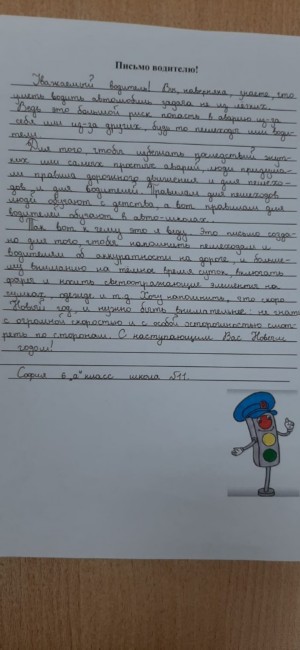 Письмо водителю!
Уважаемый водитель! Вы, наверняка, знаете, что
уметь водить автомобиль задача не из легких.
Ведь это большой риск попасть в аварию из-за
себя или из-за других, будь то пешеход или води-
тель.
Для того, чтобы избежать последствий жут-
ких или самых простых аварий, люди придума-
ли правила дорожного движения и для пешехо-
дов, и для водителей. Правилам для пешеходов
люди обучают с детства, а вот правилам для
водителей обучают в авто-школах.
Так вот к чему это я веду. Это письмо созда-
но для того, чтобы напомнить пешеходам и
водителям об аккуратности на дороге, и больше-
му вниманию на тёмное время суток, включать
фары и носить светоотражающие элементы на
сумках, одежде и т.д. Хочу напомнить, что скоро
Новый год, и нужно быть внимательнее, не гнать
с огромной скоростью и с особой осторожностью смот-
реть по сторонам. С наступающим Вас Новым
годом!
София 6 „а" класс школа №11.